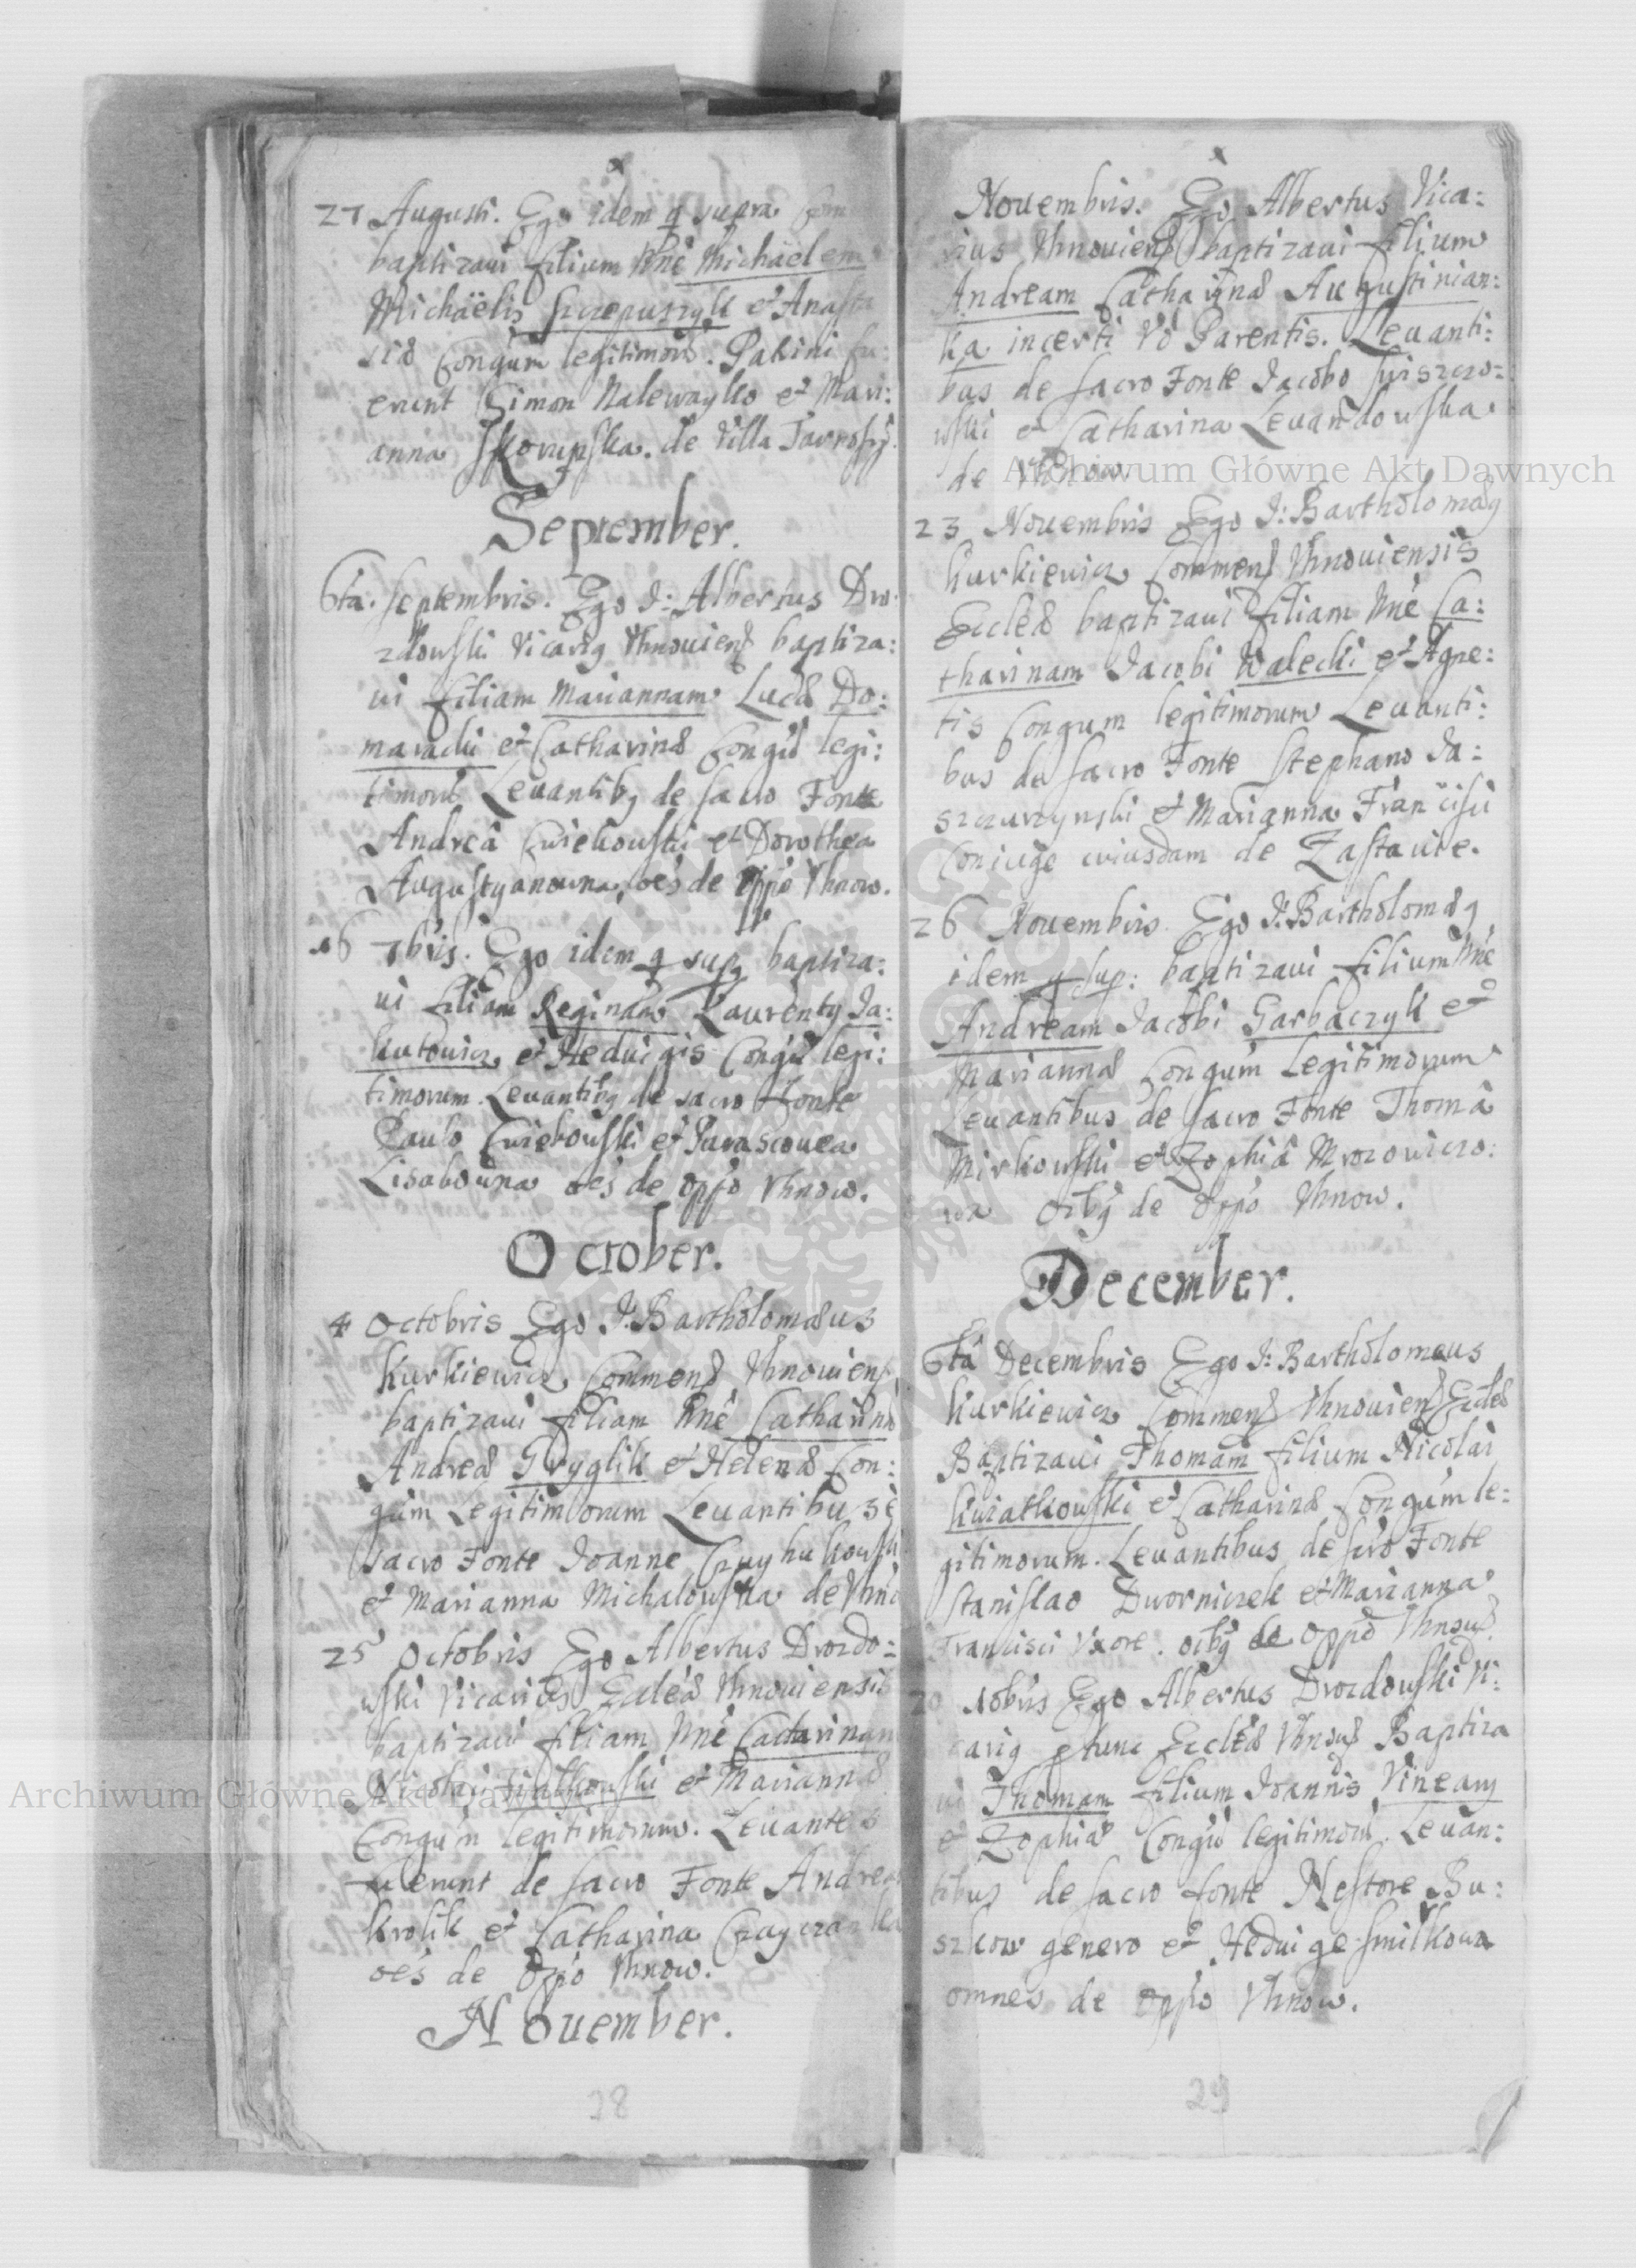 27 Augusti. Ego idem q supra
baptizavi filium nñe Michäelem
Michäelis Szczepuszyk et Anasta
siæ Conğum legitimorũ. Patrini fu:
erunt Simon Nalewayko et Mari:
anna Skorupska. de Villa Tarnoszy.
September.
6ta. Septembris. Ego J: Albertus Dro:
zdowski Vicarig Vhnouiens baptiza:
ui filiam Mariannam Lucæ Do:
maracki et Catharinæ Congũ legi:
timorũ Leuantibg de sacro Fonte
Andreâ Cwiekowski et Dorothea
Augustyanowna, oẽs de Oppõ Vhnow.
16 7bris. Ego idem q supq baptiza:
ui filiam Reginam Laurenty Ja:
kutowicz et Heduigis Congũ legi:
timorum. Leuantibg de sacro fonte
Paulo Cwiekowski et Parascouea
Lisabowna oẽs de oppõ Vhnow.
October.
4 Octobris Ego J. Bartholomæus
Kurkiewicz Commend Vhnouiens
baptizaui filiam nñe Catharinã
Andreæ Gryglik et Helenæ Con:
gũm Legitimorum Leuantibus è
sacro Fonte Joanne
et Marianna Michalowska de Vhno
25 Octobris Ego Albertus Drozdo=
wski Vicarius Ecclẽæ Vhnouiensis
baptizaui filiam nñe Catarinam
Nicolai Fialkowski et Mariannæ
Congũm legitimorum. Leuantes
fuerunt de sacro Fonte Andreas
Krolik et Catharina
oẽs de Oppõ Vhnow.
Nouember.
28
Nouembris. Ego Albertus Vica:
rius Vhnouiens baptizaui filium
Andream Catharinæ Augustinian:
ka incerti võ Parentis. Leuanti:
bus de sacro Fonte Jacobo
wski et Catharina Leuandowska
de Vhnow
23 Nouembris Ego J: Bartholomæg
Kurkiewicz Commend Vhnouiensis
Ecclẽæ baptizaui filiam nñe Ca:
tharinam Jacobi Walecki et Agne:
tis Congum legitimorum Leuanti:
bus de sacro Fonte Stephano Ja:
szczurzynski et Marianna Francisci
Coniuge cuiusdam de Zastauie.
26 Nouembris Ego J: Bartholomæg
idem q sup: baptizaui filium nñe
Andream Jacobi Garbaczyk et
Mariannæ Congũm Legitimorum
Leuantibus de sacro Fonte Thomâ
Mirkowski et Zophiâ Mrozowiczo:
wa oĩbg de Oppõ Vhnow.
December.
6tâ Decembris Ego J: Bartholomeus
Kurkiewicz Commend Vhnouiens Ecclẽæ
Baptizaui Thomam filium Nicolai
Kwiatkowski et Catharinæ Congũm le:
gitimorum. Leuantibus de sacro Fonte
Stanislao Dworniczek et Marianna
Francisci Vxore. oĩbg de Oppõ Vhnow
20 10bris Ego Albertus Drozdowski Vi:
carig ptunc Ecclẽæ Vhnows Baptiza
ui Thomam filium Joannis Vineary
et Zophiæ Congũ legitimorũ. Leuan:
tibus de sacro fonte Nestore Bu:
szkow genero et Heduige Smilkowa
omnes de oppõ Vhnow.
29
Archiwum Główne Akt Dawnych
Archiwum Główne Akt Dawnych